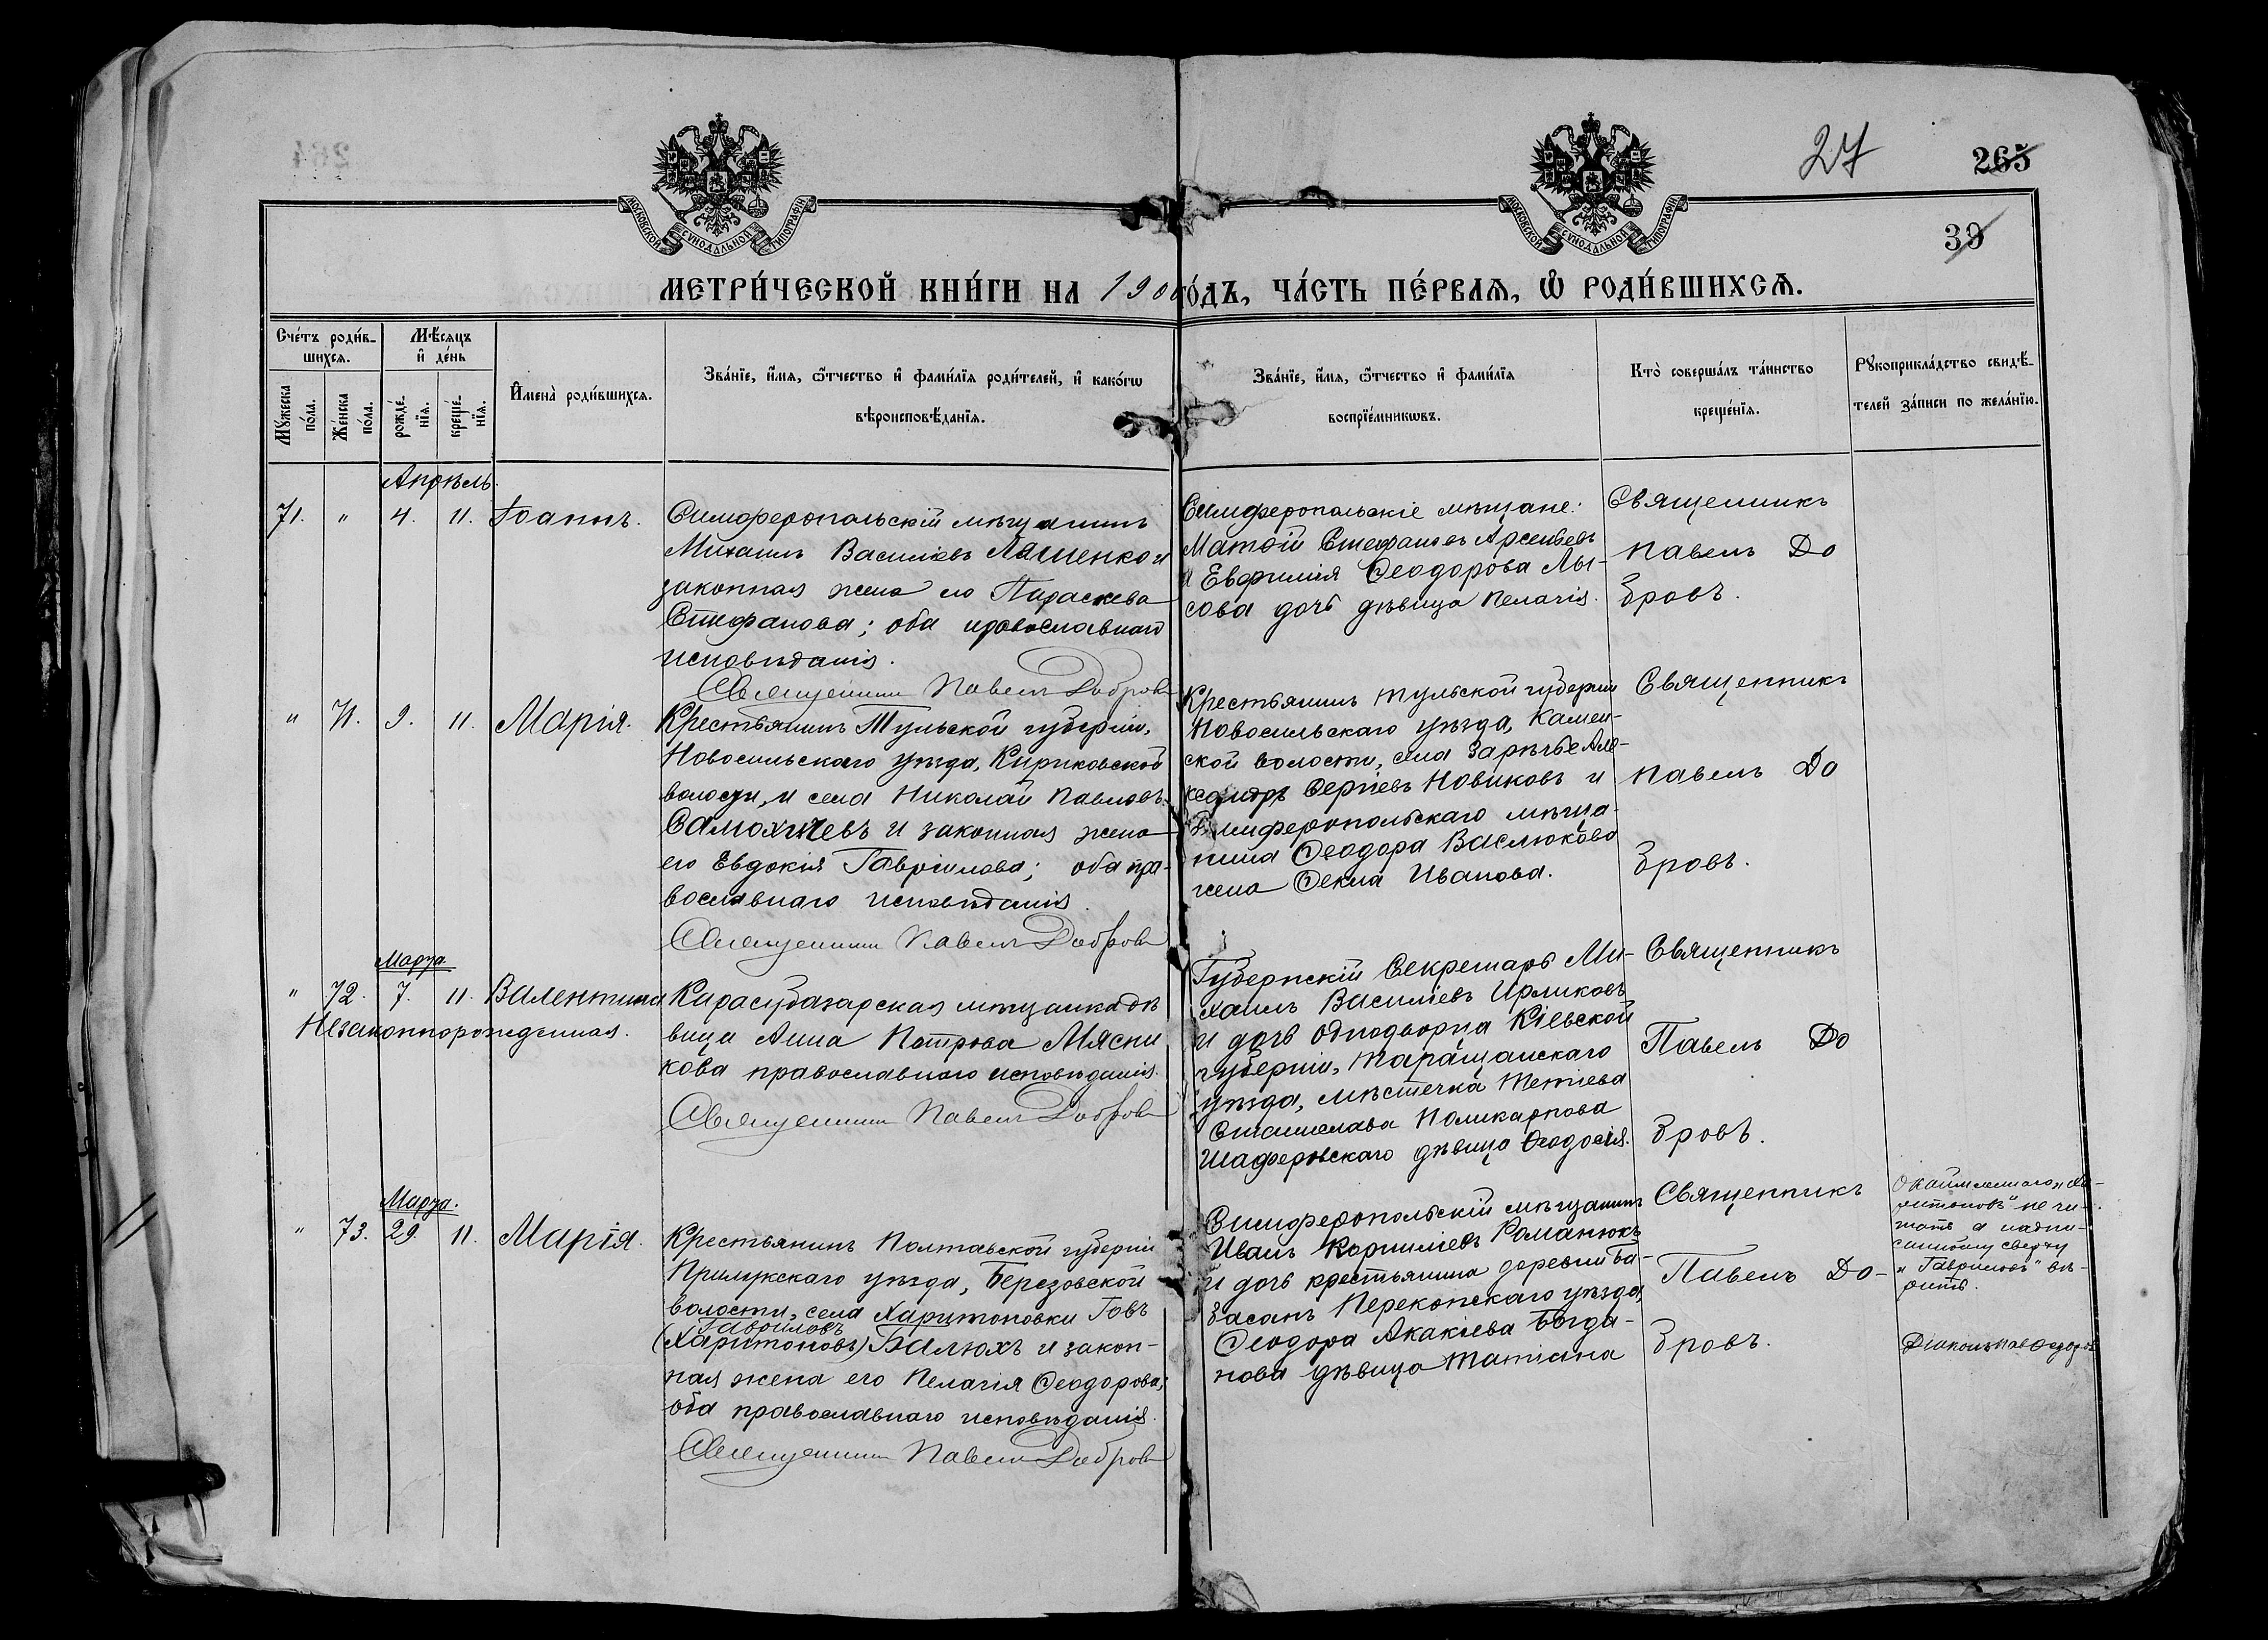 27
265
39
МОСКОВСКОЙ СѴНОДАЛЬНОЙ ТИПОГРАФІИ
МОСКОВСКОЙ СѴНОДАЛЬНОЙ ТИПОГРАФІИ
МЕТРИ́ЧЕСКОЙ КНИ́ГИ НА 190 го́дъ, ЧА́СТЬ ПЕ́РВАѦ, Ѽ РОДИ́ВШИХСѦ.
Сче́тъ роди́в-
шихся.
Мѣ́сяцъ
и̂ де́нь
Мꙋ́жеска по́ла.
Же́нска по́ла.
рожде́-нїя.
креще́-нїя.
И̂мена̀ роди́вшихся.
Зва́нїе, и̂́мя, ѻ̂́тчество и̂ фами́лїя роди́телей, и̂ како́гѡ
вѣроисповѣ́данїя.
Зва́нїе, и̂́мя, ѻ̂́тчество и̂ фами́лїя
воспрїе́мникѡвъ.
Кто̀ соверша́лъ та́инство
креще́нїя.
Рꙋкоприкла́дство свидѣ́-
телей за́писи по жела́нїю.
Апрѣль.
71. " 4. 11. Іоаннъ.
Симферопольскій мѣщанинъ
Михаилъ Василіевъ Ляшенко и
законная жена его Параскева
Стефанова; оба православнаго
исповѣданія.
Священникъ Павелъ Добровъ
Симферопольскіе мѣщане:
Матѳій Стефановъ Арсеньевъ
и Евфимія Ѳеодорова Лы-
сова дочь дѣвица Пелагія.
Священникъ
Павелъ До
бровъ.
" 71. 9. 11. Марія.
Крестьянинъ Тульской губерніи,
Новосильскаго уѣзда, Кириковской
волости, и села Николай Павловъ
Самохичевъ и законная жена
его Евдокія Гавріилова; оба пра-
вославнаго исповѣданія.
Священникъ Павелъ Добровъ
Крестьянинъ Тульской губерніи
Новосильскаго уѣзда, Камен-
ской волости, села Зарѣчье Але-
ксандръ Сергіевъ Новиковъ и
Симферопольскаго мѣща-
нина Ѳеодора Васлюкова
жена Ѳекла Иванова.
Священникъ
Павелъ До
бровъ.
Марта
" 72. 7. 11. Валентина
Незаконнорожденная.
Карасубазарская мѣщанка дѣ
вица Анна Петрова Мясни
кова православнаго исповѣданія.
Священникъ Павелъ Добровъ
Губернскій Секретарь Ми-
хаилъ Василіевъ Ирликовъ
и дочь однодворца Кіевской
губерніи, Таращанскаго
уѣзда, мѣстечка Тетіева
Станислава Поликарпова
Шаферовскаго дѣвица Ѳеодосія.
Священникъ
Павелъ До
бровъ.
Марта.
" 73. 29. 11. Марія.
Крестьянинъ Полтавской губерніи
Прилукскаго уѣзда, Березовской
волости, села Харитоновки Говъ
Гавриловъ
(Харитоновъ) Балюхъ и закон-
ная жена его Пелагія Ѳеодорова;
оба православнаго исповѣданія.
Священникъ Павелъ Добровъ
Симферопольскій мѣщанинъ
Иванъ Корниліевъ Романюкъ
и дочь крестьянина деревни Ба-
засанъ Перекопскаго уѣзда,
Ѳеодора Акакіева Богда-
нова дѣвица Татіана
Священникъ
Павелъ До-
бровъ.
Окаймленнаго „Ха-
ритоновъ" не чи-
тать а надпи-
санному сверху
„Гавриловъ" вѣ-
рить.
Діаконъ